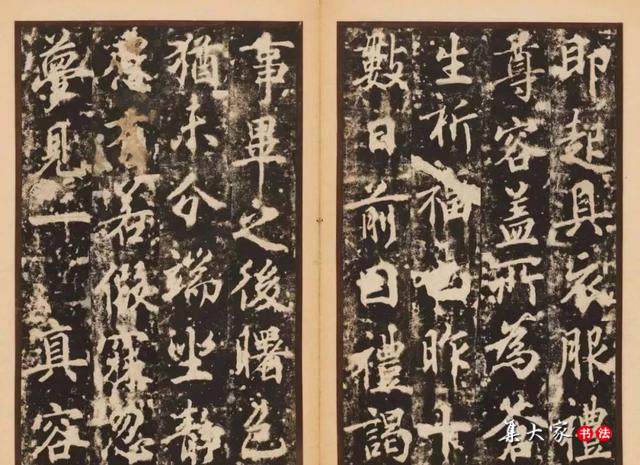 即起具衣服禮
尊容盖所為蒼
生祈福也昨十
數日前因禮謁
事畢之後曙色
猶未分端坐靜
慮有若假寐忽
夢見一真容
集大家书法